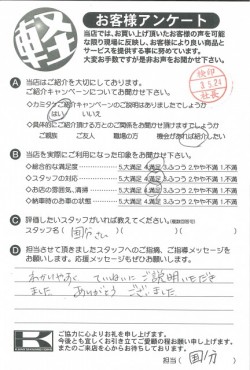 軽
お客様アンケート
当店では、お買い上げ頂いたお客様の声を可能
な限り現場に反映し、お客様により良い商品と
サービスを提供する事に努めています。
大変お手数ですが是非お声をお聞かせ下さい。
検印
3.5.21
社長
A 当店はご紹介を大切にしております。
ご紹介キャンペーンについてお聞かせ下さい。
◇カミタンご紹介キャンペーンのご説明はありましたでしょうか
はい いいえ
◇具体的にご紹介頂ける方とのご関係をお聞かせ頂けますでしょうか
ご親族 ご友人 職場の方 機会があれば紹介したい
B 当店を実際にご利用になった印象をお聞かせ下さい。
◇総合的な満足度 5.大満足 4.満足 3.ふつう 2.やや不満 1.不満
◇スタッフの対応 5.大満足 4.満足 3.ふつう 2.やや不満 1.不満
◇お店の雰囲気、清掃 5.大満足 4.満足 3.ふつう 2.やや不満 1.不満
◇納車時のお車の状態 5.大満足 4.満足 3.ふつう 2.やや不満 1.不満
C 評価したいスタッフがいれば教えてください。
スタッフ名( 国分さん )
D 担当させて頂きましたスタッフへのご指摘、ご指導メッセージを
お願いします。応援メッセージもぜひお願いします。
わかりやすく ていねいに ご説明いただき
ました ありがとう ございました
K
ご協力に心よりお礼を申し上げます。
今後とも宜しくお引き立てご愛顧の程お願い申し上げます。
またのご来店を心からお待ちしております。
担当( 国分 )